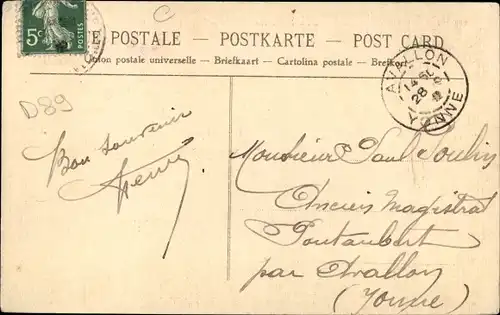 5c
POSTES
C
TE POSTALE – POSTKARTE – POST CARD
nion postale universelle – Briefkaart – Cartolina postale – Brefkort
AVALLON
14 50
28
YONNE
D89
Bon souvenir
Henri
Monsieur Paul
Ancien Magistrat
Pontaubert
par Avallon
(Yonne)